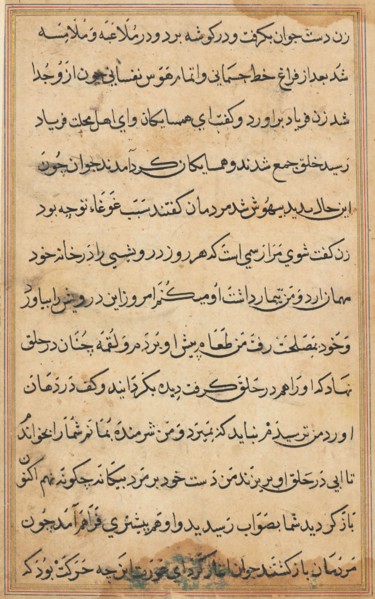 زن دست جوان بگرفت و در گوشه برد و در ملاعبه و ملامسه
شد بعد از فراغ خط جسمانی و اتمام هوس نفسانی چون ازو جدا
شد زن فریاد براورد و گفت ای همسایکان و ای اهل محلت فریاد
رسید خلق جمع شدند و همسایکان کرد آمدند جوان چون
این حال بدید بیهوش شد مردمان گفتند سبب غوغاء تو چه بود
زن گفت شوی مرا رسمی است که هر روز درویشی را در خانه خود
مهمان ارد و من تیمار داشت او میکنم امروز این درویش را بیاورد
و خود بمصلحت رفت من طعام پیش او بردم و لقمه چنان در حلق
نهاد که او را هم در حلق گرفت دیده بگردانید و کف در دهان
اورد من ترسیدم نباید که بمیرد و من شرمنده بمانم شما را بخواندم
تا ابی در حلق او بریزند من دست خود بر مرد بیکانه چکونه نهم اکنون
باز کردید شما بصواب رسیدید و او هم بهتری فراهم آمد چون
مردمان باز کشتند جوان اغاز کرد ای عورت این چه حرکت بود که